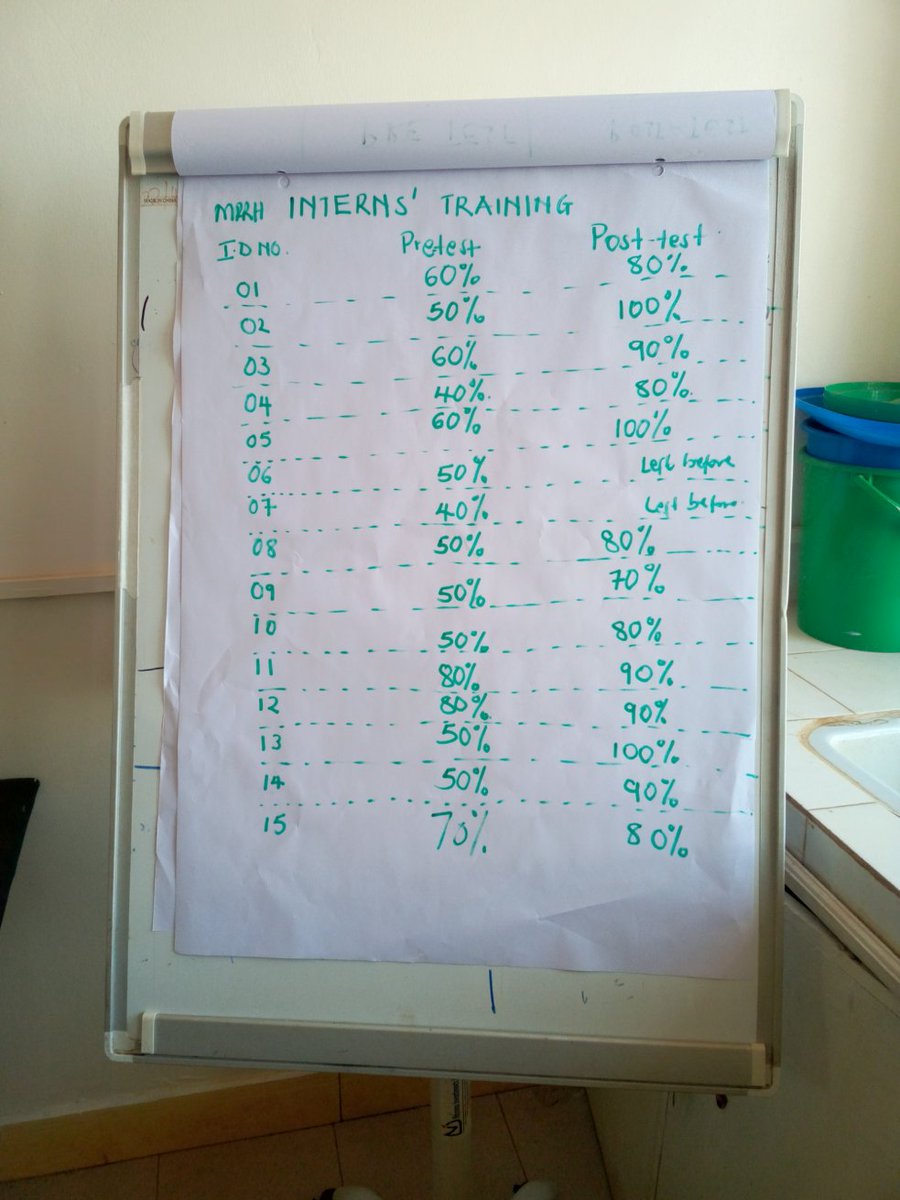 PRE TEST POST-TEST
MADE IN CHINA
MRRH INTERNS' TRAINING
I.D NO. Pretest Post-test
01 60% 80%
02 50% 100%
03 60% 90%
04 40% 80%
05 60% 100%
06 50% Left before
07 40% Left before
08 50% 80%
09 50% 70%
10 50% 80%
11 80% 90%
12 80% 90%
13 50% 100%
14 50% 90%
15 70% 80%